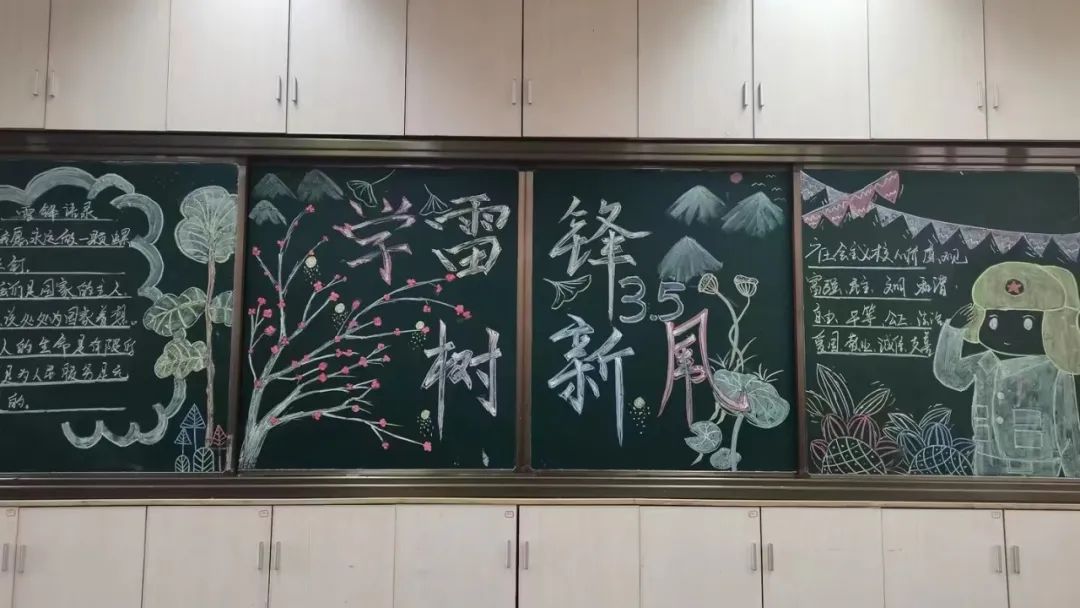 雷锋语录
我愿永远做一颗螺
丝钉.
我们是国家的主人
该处处为国家着想.
人的生命是有限的
是为人民服务是无
的.
学雷锋
3.5
树新风
社会主义核心价值观
富强 民主 文明 和谐
自由 平等 公正 法治
爱国 敬业 诚信 友善